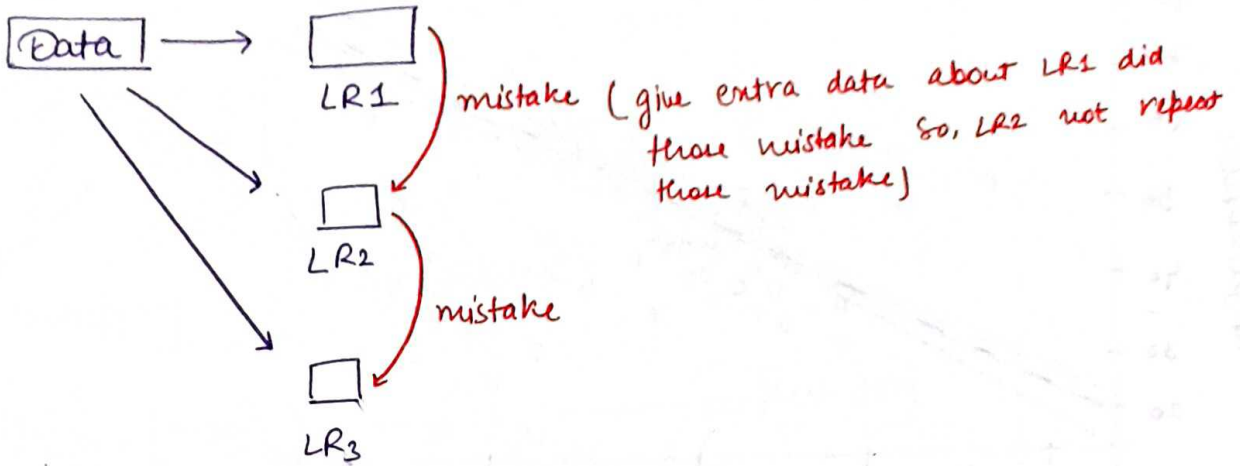 Data
LR1
mistake (give extra data about LR1 did
those mistake so, LR2 not repeat
those mistake)
LR2
mistake
LR3